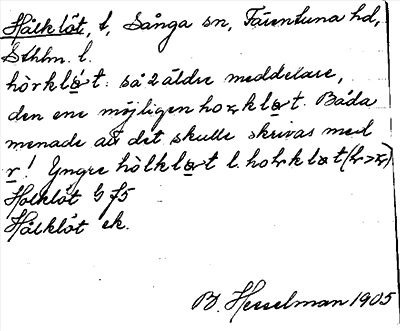 Hålklöt, t, Sånga sn, Färentuna hd,
Sthlm. l.
hòrklø̠t. så 2 äldre meddelare,
den ene möjligen hoꝛklo̠t. Båda
menade att det skulle skrivas med
r! Yngre hòlklo̠t l. holꝛklot (l>ꝛ)
Holklöt G J5
Hålklöt ek.
B. Hesselman 1905